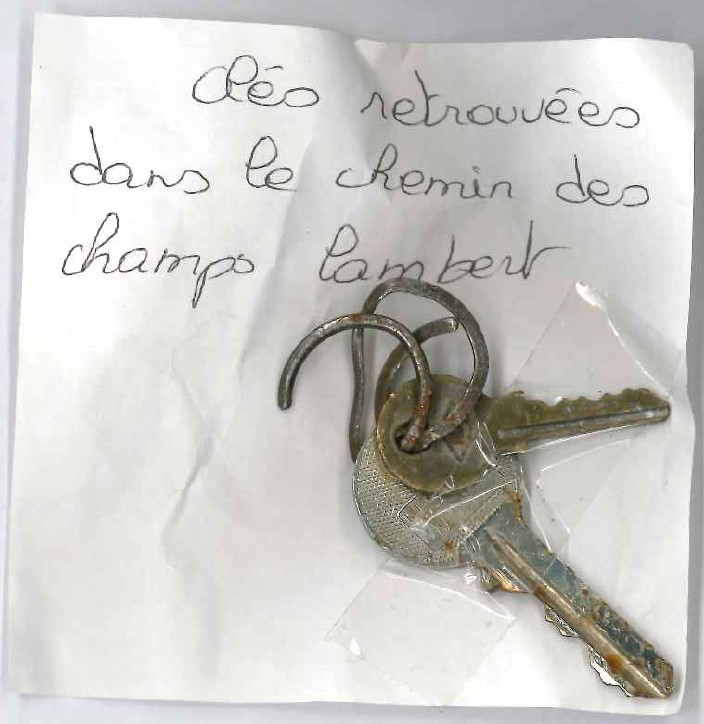 Clés retrouvées
dans le chemin des
champs lambert